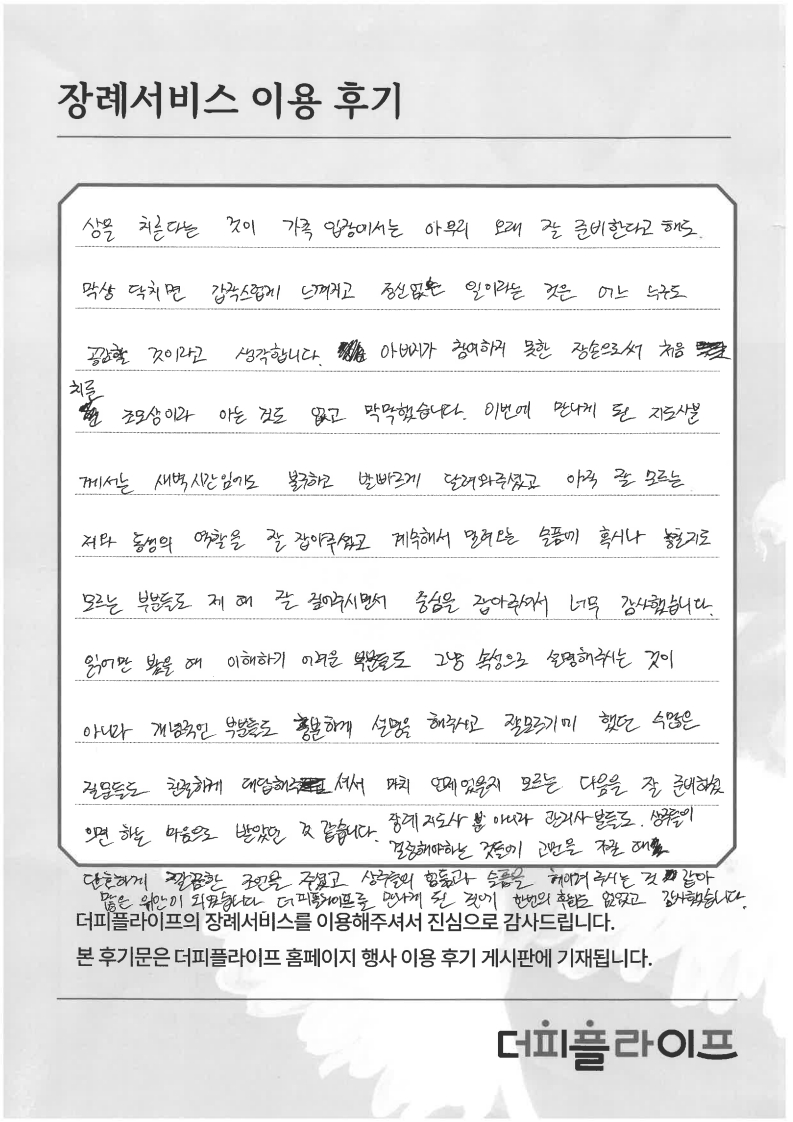 장례서비스 이용 후기
상을 치른다는 것이 가족 입장에서는 아무리 오래 잘 준비한다고 해도.
막상 닥치면 갑작스럽게 느껴지고 정신없는 일이라는 것은 어느 누구도
공감할 것이라고 생각합니다. 아버지가 참여하지 못한 장손으로써 처음
치룬
조모상이라 아는 것도 없고 막막했습니다. 이번에 만나게 된 지도사분
께서는 새벽시간임에도 불구하고 발빠르게 달려와주셨고 아직 잘 모르는
저와 동생의 역할을 잘 잡아주셨고 계속해서 밀려오는 슬픔에 혹시나 놓칠지도
모르는 부분들도 제 때 잘 짚어주시면서 중심을 잡아주셔서 너무 감사했습니다.
읽어만 봤을 때 이해하기 어려운 부분들도 그냥 속성으로 설명해주시는 것이
아니라 개념적인 부분들도 충분하게 설명을 해주시고 잘모르기에 했던 수많은
질문들도 친절하게 대답해주셔서 마치 언제있을지 모르는 다음을 잘 준비하셨
으면 하는 마음으로 받았던 것 같습니다. 장례지도사 분 아니라 관리사 분들도. 상주들이
결정해야하는 것들에 고민을 할 때
단호하게 깔끔한 조언을 주셨고 상주들의 힘듦과 슬픔을 헤아려 주시는 것 같아
많은 위안이 되었습니다 더피플라이프를 만나게 된 것에 한번의 후회도 없었고 감사했습니다.
더피플라이프의 장례서비스를 이용해주셔서 진심으로 감사드립니다.
본 후기문은 더피플라이프 홈페이지 행사 이용 후기 게시판에 기재됩니다.
더피플라이프